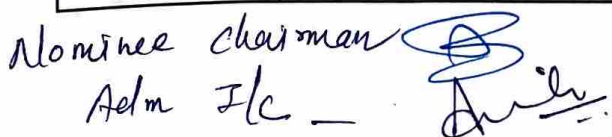 Nominee Chairman
Adm I/c _